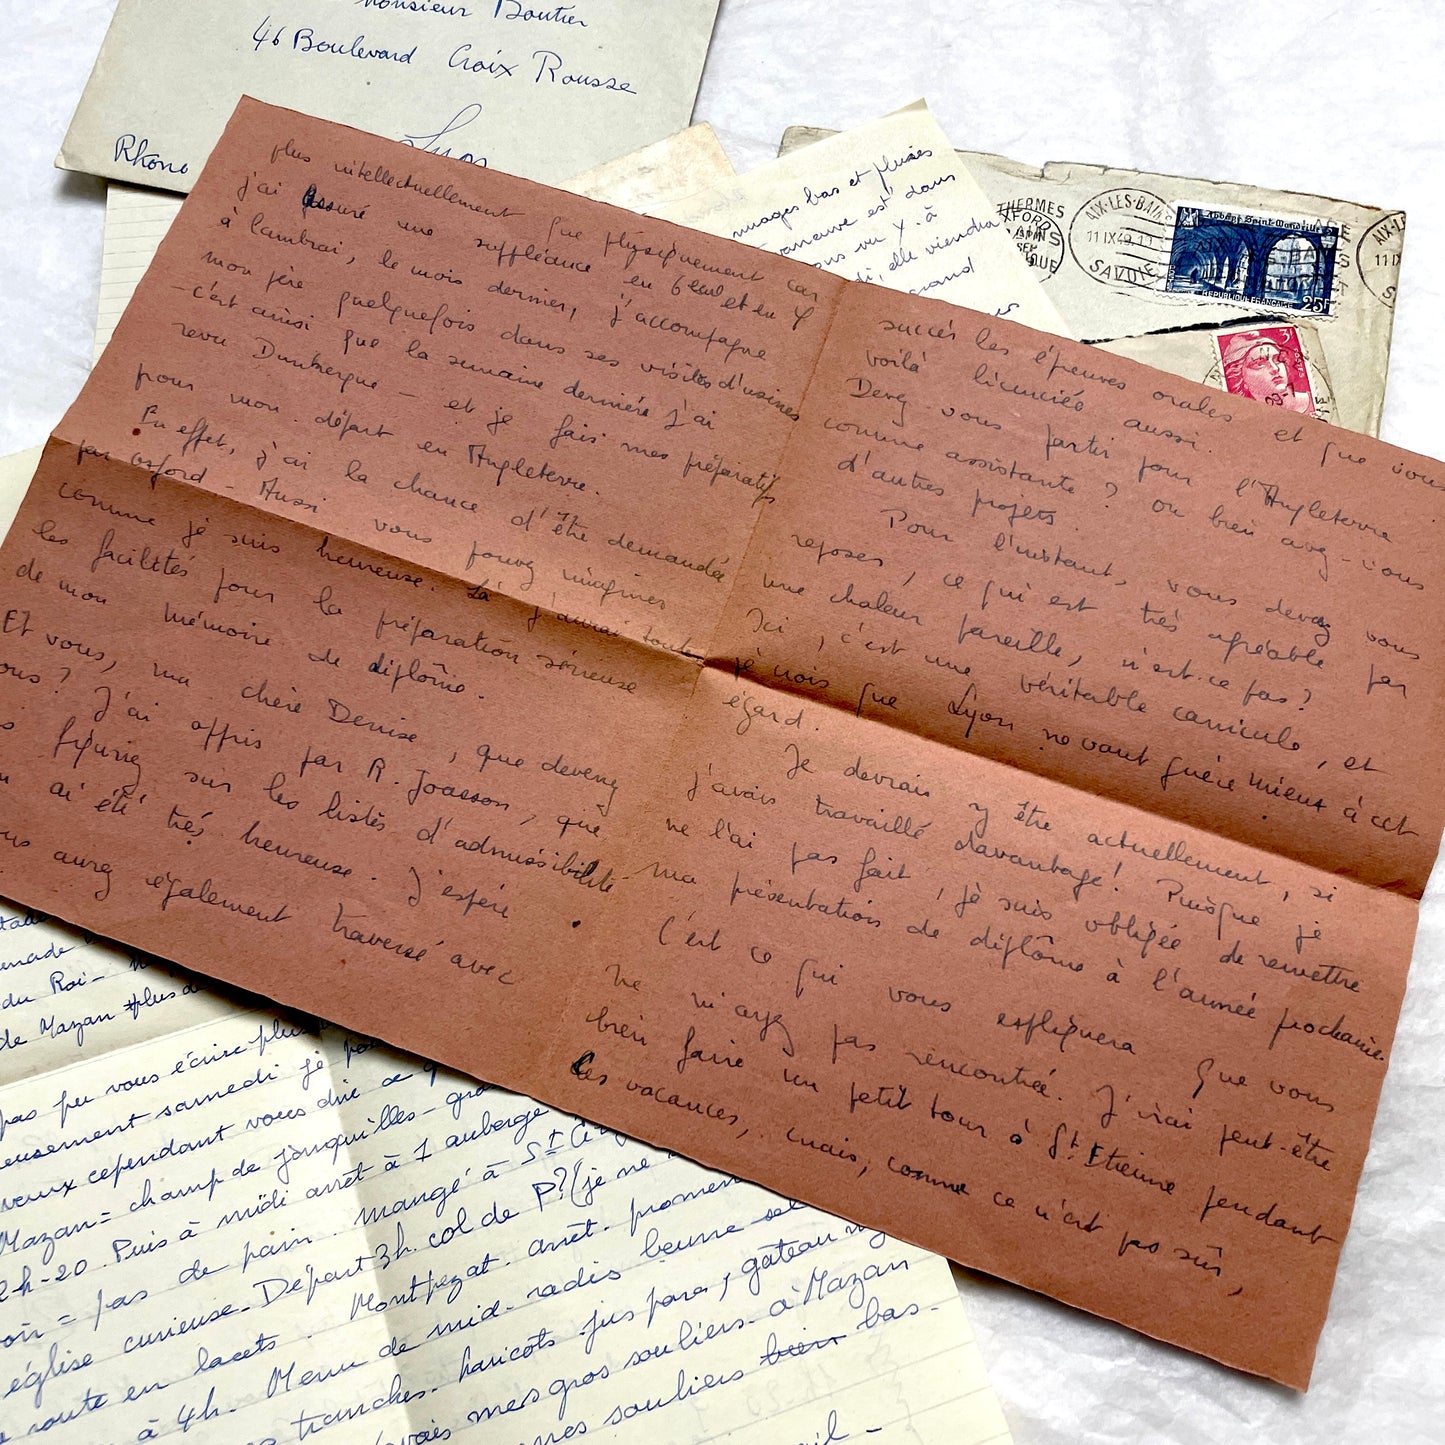 Monsieur Boutier
46 Boulevard Croix Rousse
Lyon
Rhône
plus intellectuellement que physiquement car
j'ai assuré une suppléance en 6ème et en 4
à Cambrai, le mois dernier, j'accompagne
mon père quelquefois dans ses visites d'usines
- c'est ainsi que la semaine dernière j'ai
revu Dunkerque - et je fais mes préparatifs
pour mon départ en Angleterre.
En effet, j'ai la chance d'être demandée
par Oxford - Aussi vous pouvez imaginer
comme je suis heureuse. Là j'aurai toutes
les facilités pour la préparation sérieuse
de mon mémoire de diplôme.
Et vous, ma chère Denise, que devenez
vous? J'ai appris par R. que
figuriez sur les listes d'admissibilité
ai été très heureuse. J'espère
aurez également traversé avec
succès les épreuves orales et que vous
voilà licenciée aussi.
Devez-vous partir pour l'Angleterre
comme assistante? ou bien avez-vous
d'autres projets.
Pour l'instant, vous devez vous
reposer, ce qui est très agréable par
une chaleur pareille, n'est-ce pas?
Ici, c'est une véritable canicule, et
je vois que Lyon ne vaut guère mieux à cet
égard.
Je devrais y être actuellement, si
j'avais travaillé davantage! Puisque je
ne l'ai pas fait, je suis obligée de remettre
ma présentation de diplôme à l'année prochaine.
C'est ce qui vous expliquera que vous
ne m'ayez pas rencontrée. J'irai peut-être
bien faire un petit tour à St Etienne pendant
les vacances, mais, comme ce n'est pas sûr,
nuages bas et pluies
est dans
vu Y. à
elle viendra
grand
THERMES
AIX-LES-BAINS
11 IX 49
SAVOIE
Abbaye Saint-Wandrille
REPUBLIQUE FRANÇAISE
25F
3F
AIX-L
11 IX
du Roi -
de Mazan plus de
pas pu vous écrire plus
samedi je
veux cependant vous dire ce q
Mazan = champ de jonquilles - gra
2h-20. Puis à midi arrêt à 1 auberge
= pas de pain. mangé à St Ci
église curieuse. Départ 3h. col de P? (je ne
route en lacets. Montpezat. arrêt. promen
à 4h. Menu de midi. radis beurre
tranches. haricots. jus para, gâteau
mes gros souliers. à Mazan
souliers bien bas.